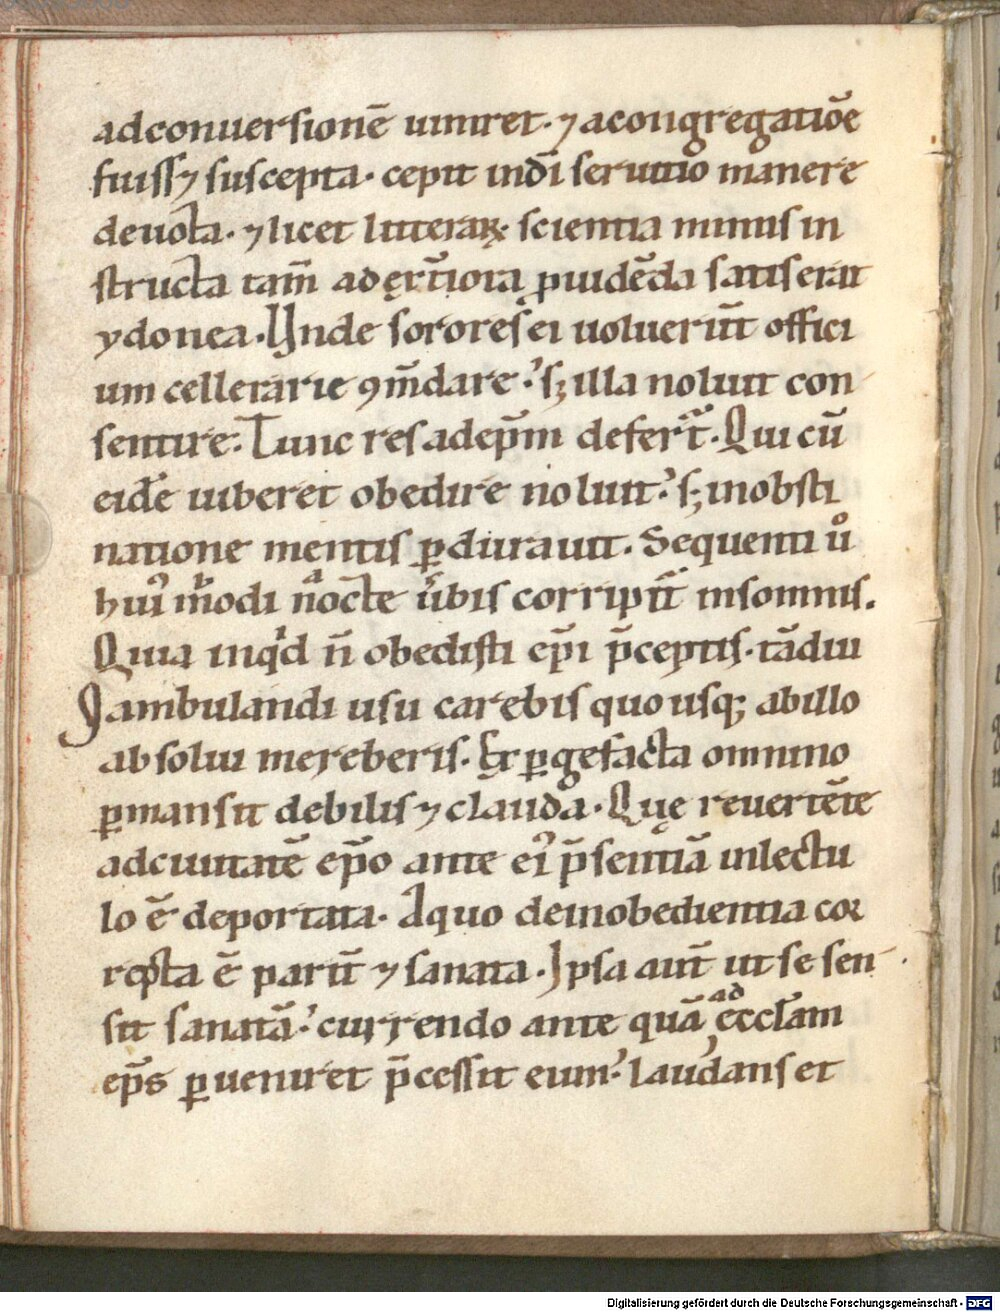 adconuersionē ueniret · ⁊ acongregatiōe
fuiss⁊ suscepta · cepit indī seruitio manere
deuota · ⁊ licet litterarꝝ scientia minus in
structa tam̄ ad ęxt̄iora ꝓuidēda satis erat
ydonea · Unde sorores ei uoluerūt offici
um cellerarie ꝯm̄dare · sꝫ illa noluit con
sentire · Tunc res adep̄m defert᷑ · Qui cū
eidē iuberet obedire noluit · sꝫ inobsti
natione mentis ꝑdurauit · Sequenti u̾o
hui᷒ mōdi nocte u̾bis corripit᷑ insomnis .
Quia inq̇d n̄ obedisti ep̄i p̄ceptis · tādiu
ambulandi usu carebis quousqꝫ abillo
absolui mereberis · Exꝑgefacta omnino
ꝑmansit debilis ⁊ clauda · Quę reuertēte
adciuitatē ep̄o ante ei᷒ p̄sentiā inlectu
lo ē deportata · Aquo deinobedientia cor
repta ē parit̄ ⁊ sanata · Ipsa aut̄ ut se sen
sit sanatā · currendo ante quā ad ęccl̄am
ep̄s ꝑueniret p̄cessit eum · laudans et
Digitalisierung gefördert durch die Deutsche Forschungsgemeinschaft - DFG